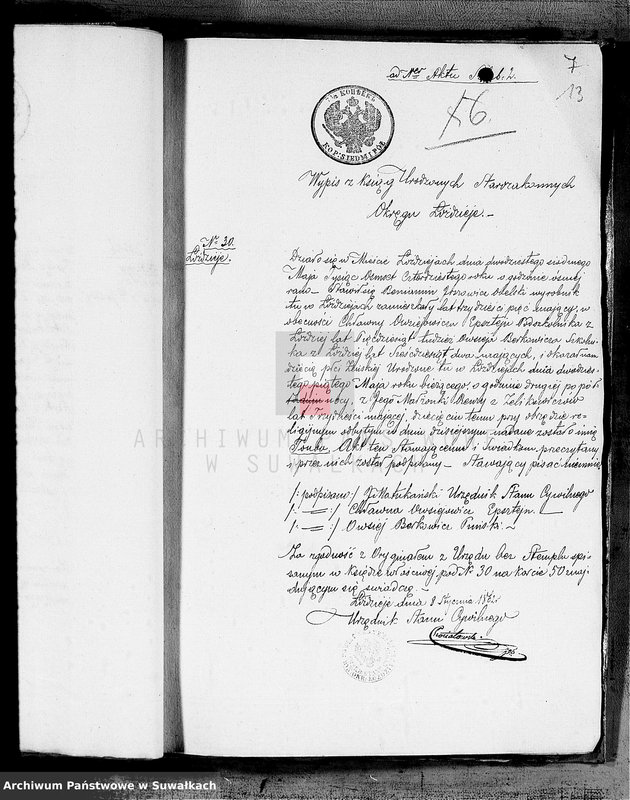 ad Ner Aktu
7
13
KOP: SIEDM I PÓŁ
Wypis z Ksiąg Urodzonych Starozakonnych
Okręgu Łoździeje. –
№ 30.
Łoździeje.
Działo się w Mieście Łoździejach dnia dwudziestego siódmego
Maja Tysiąc Osmset Czterdziestego roku o godzinie ósmej
rano – Stawił się Beniamin wyrobnik
tu w Łoździejach zamieszkały lat trzydzieści pięć mający, w
obecności Chławny Owsiejowicza Epsztejn z
Łoździej lat Pięćdziesiąt tudzież Owsieja Berkowicza
z Łoździej lat Sześćdziesiąt dwa mających, i okazał nam
dziecię płci Żeńskiej Urodzone tu w Łoździejach dnia dwudzies-
tego piątego Maja roku bieżącego, o godzinie drugiej po pół-
nocy, z Jego Małżonki z
lat Trzydzieści mającej, dziecięciu temu przy obrzędzie re-
ligijnym odbytym w dniu dzisiejszym nadane zostało imię
Akt ten stawającemu i Świadkom przeczytany
i przez nich został podpisany – Stawający pisać nieumie
/: podpisano:/ Urzędnik Stanu Cywilnego
/: = :/ Chławna Owsiejowicz Epsztejn.
/: = :/ Owsiej Berkowicz –
Za zgodność z Oryginałem z Urzędu bez Stempla spi-
sanym w księdze właściwej pod № 30 na karcie 50 znaj-
dującym się świadczę. –
Łoździeje dnia 8 Stycznia
Urzędnik Stanu Cywilnego
ARCHIWUM PAŃSTWOWE
W SUWAŁKACH
Archiwum Państwowe w Suwałkach